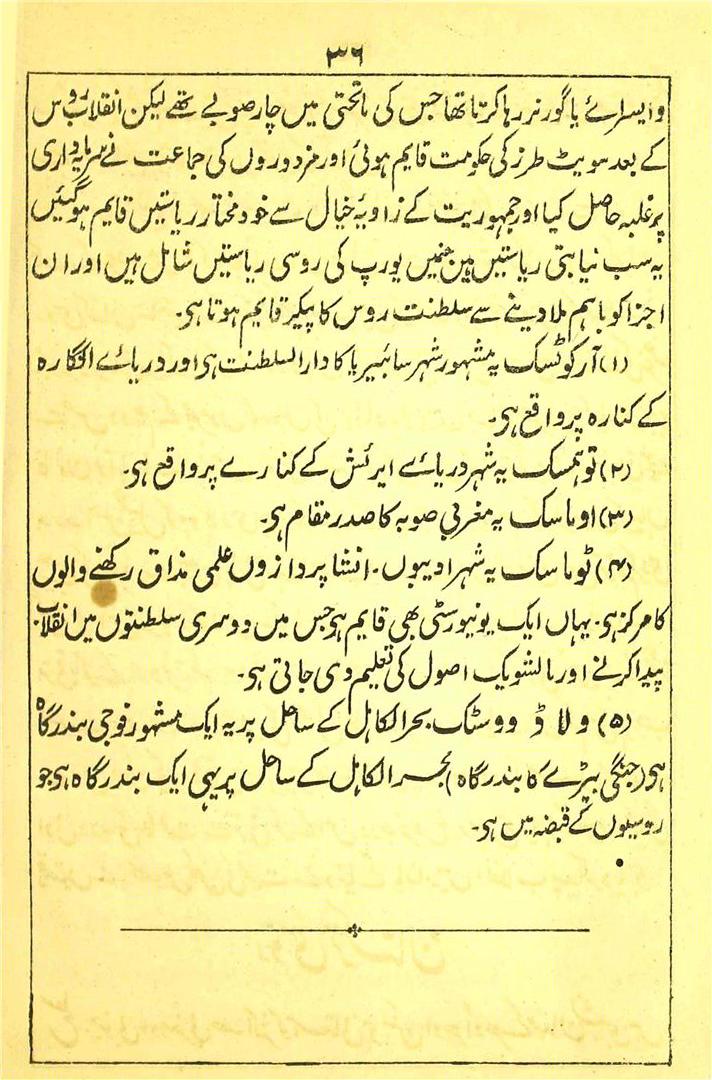 ۳۶
وایسرائے یا گورنر رہا کرتا تھا جس کی ماتحتی میں چار صوبے تھے لیکن انقلاب روس
کے بعد سویٹ طرز کی حکومت قایم ہوئی اور مزدوروں کی جماعت نے سرمایہ داری
پر غلبہ حاصل کیا اور جمہوریت کے زاویۂ خیال سے خود مختار ریاستیں قایم ہوگئیں
یہ سب نیابتی ریاستیں ہین جنمیں یورپ کی روسی ریاستیں شامل ہیں اور ان
اجزا کو باہم ملا دینے سے سلطنت روس کا پیکر قایم ہوتا ہی۔
(۱) آرکوٹسک یہ مشہور شہر سائبیریا کا دار السلطنت ہی اور دریائے انگارہ
کے کنارہ پر واقع ہی۔
(۲) توبمسک یہ شہر دریائے ایرئش کے کنارے پر واقع ہی۔
(۳) اوماسک یہ مغربی صوبہ کا صدر مقام ہی۔
(۴) ٹوماسک یہ شہر ادیبوں۔ انشا پردازوں علمی مذاق رکھنے والوں
کا مرکز ہی۔ یہاں ایک یونیورسٹی بھی قایم ہی جس میں دوسری سلطنتوں میں انقلاب
پیدا کرنے اور بالشویک اصول کی تعلیم دی جاتی ہی۔
(۵) ولاڈووسٹک بحر الکاہل کے ساحل پر یہ ایک مشہور فوجی بندرگاہ
ہی (جنگی بیڑے کا بندرگاہ) بحر الکاہل کے ساحل پر یہی ایک بندرگاہ ہی جو
روسیوں کے قبضہ میں ہی۔